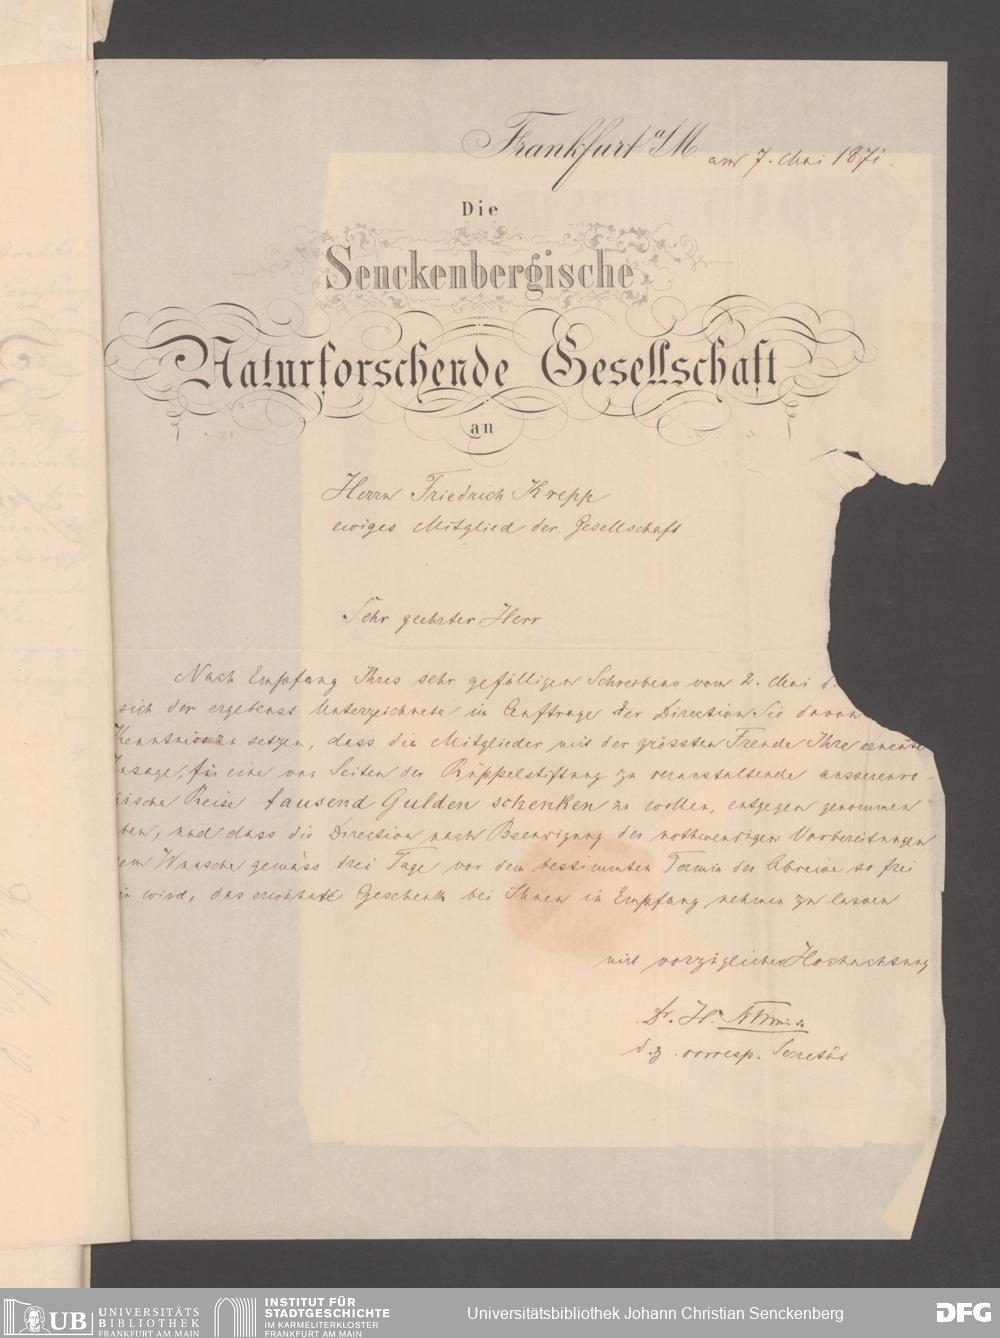 Frankfurt a/M am 7. Mai 1871.
Die
Senckenbergische
Naturforschende Gesellschaft
an
Herrn Friedrich Krepp
ewiges Mitglied der Gesellschaft
Sehr geehrter Herr
Nach Empfang Ihres sehr gefälligen Schreibens vom 2. Mai d.
sich der ergebenst Unterzeichnete im Auftrage der Direction Sie davon
Kenntniss zu setzen, dass die Mitglieder mit der grössten Freude Ihre erneute
Zusage, für eine von Seiten der Rüppelstiftung zu veranstaltende aussereuro-
ische Reise tausend Gulden schenken zu wollen, entgegen genommen
ben, und dass die Direction nach Beendigung der nothwendigen Vorbereitungen
em Wunsche gemäss drei Tage vor dem bestimmten Termin der Abreise so frei
in wird, das erwähnte Geschenk bei Ihnen in Empfang nehmen zu lassen
mit vorzüglicher Hochachtung
Dr. H.
d. z. corresp. Secretär
UB UNIVERSITÄTS
BIBLIOTHEK
FRANKFURT AM MAIN
INSTITUT FÜR
STADTGESCHICHTE
IM KARMELITERKLOSTER
FRANKFURT AM MAIN
Universitätsbibliothek Johann Christian Senckenberg
DFG